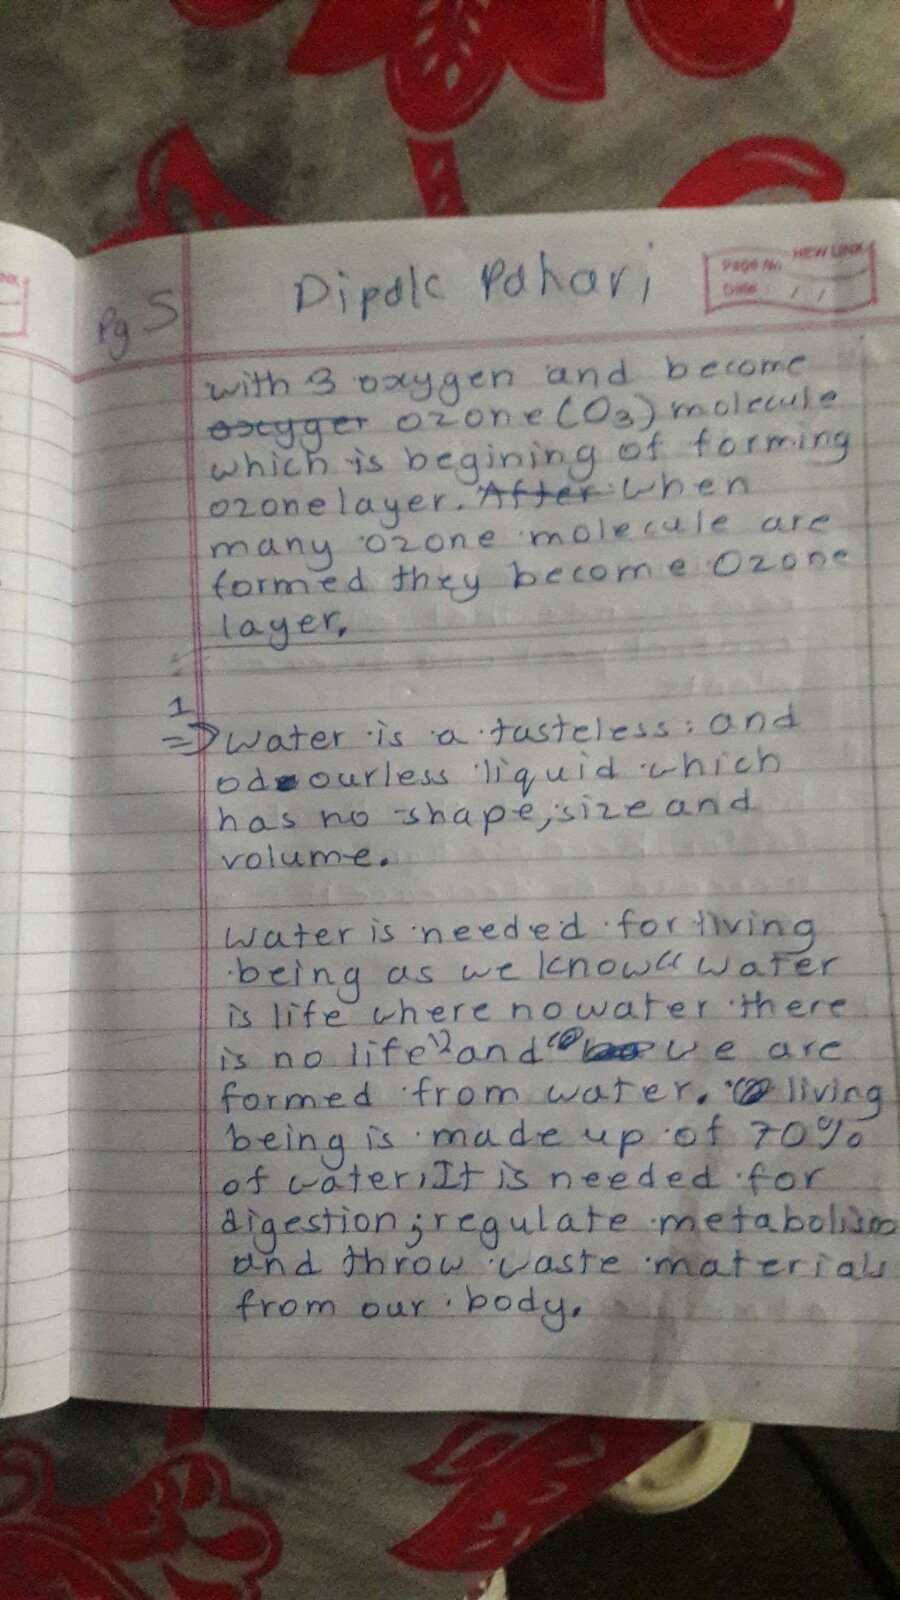 Pg 5
Dipak Pahari
NEW LINK
Page No.
Date / /
with 3 oxygen and become
oxyger ozone (O3) molecule
which is begining of forming
ozone layer. After when
many ozone molecule are
formed they become Ozone
layer.
1
⇒ Water is a tasteless and
odourless liquid which
has no shape, size and
volume.
Water is needed for living
being as we know “water
is life where no water there
is no life” and we are
formed from water. living
being is made up of 70%
of water, It is needed for
digestion, regulate metabolism
and throw waste materials
from our body.